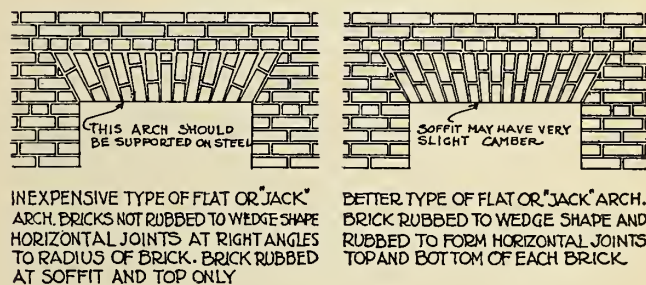 THIS ARCH SHOULD
BE SUPPORTED ON STEEL
INEXPENSIVE TYPE OF FLAT OR "JACK"
ARCH. BRICKS NOT RUBBED TO WEDGE SHAPE
HORIZONTAL JOINTS AT RIGHT ANGLES
TO RADIUS OF BRICK. BRICK RUBBED
AT SOFFIT AND TOP ONLY
SOFFIT MAY HAVE VERY
SLIGHT CAMBER
BETTER TYPE OF FLAT OR "JACK" ARCH.
BRICK RUBBED TO WEDGE SHAPE AND
RUBBED TO FORM HORIZONTAL JOINTS
TOP AND BOTTOM OF EACH BRICK